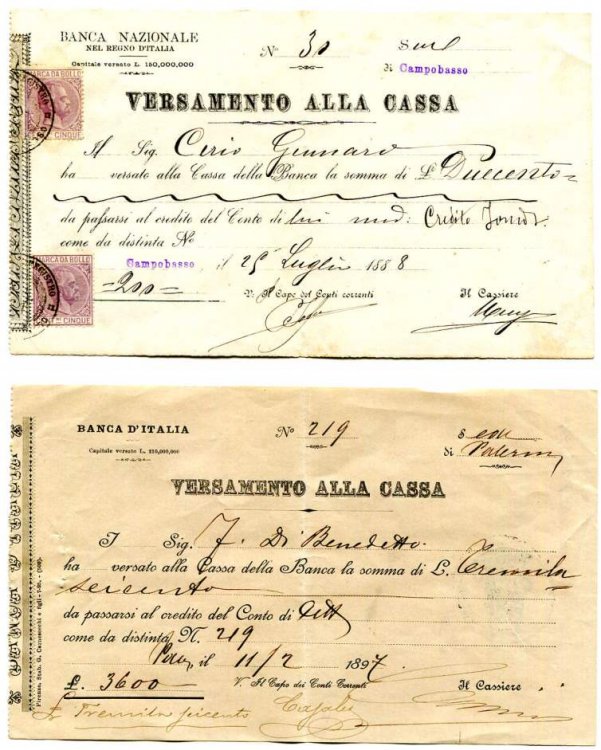 BANCA NAZIONALE
NEL REGNO D'ITALIA
Capitale versato L. 150,000,000
N° 30
di Campobasso
VERSAMENTO ALLA CASSA
MARCA DA BOLLO
CINQUE
Il Sig. Cirio Gennaro
ha versato alla Cassa della Banca la somma di L. Duecento
da passarsi al credito del Conto di
come da distinta N°
Campobasso il 25 Luglio 1888
MARCA DA BOLLO
REGISTRO
CINQUE
200
V: Il Capo dei Conti correnti
Il Cassiere
BANCA D'ITALIA
Capitale versato L. 210,000,000
N° 219
Sede
di Palermo
VERSAMENTO ALLA CASSA
I Sig. F. Di Benedetto
ha versato alla Cassa della Banca la somma di L. Tremila
seicento
da passarsi al credito del Conto di
come da distinta N. 219
il 11/2 1897
£. 3600
V. Il Capo dei Conti Correnti
Il Cassiere
£ Tremila seicento
Firenze, Stab. G. Carnesecchi e figli